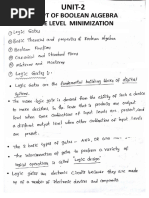 UNIT-2
PT OF BOOLEAN ALGEBRA
TE LEVEL MINIMIZATION
① Logic Gates
② Basic Theorems and properties of Boolean Algebra
③ Boolean Functions
④ Canonical and Standard Forms
⑤ Minterms and Maxterms
① Logic Gates:-
Logic gates are the fundamental building blocks of digital
systems.
The name logic gate is derived from the ability of such a device
to make decisions, in the sense that it produces one output
level when some combinations of input levels are present, and
a different output level when other combination of input levels
are present.
The 3 basic types of gates - AND, OR and
The interconnection of gates to perform a variety of
logical operations is called "Logic design"
Logic gates are electronic circuits because they are made
up of a number of electronic devices and components